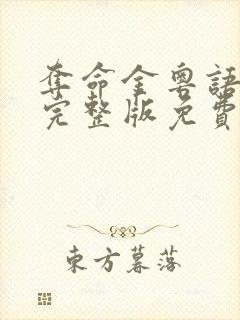 奪命金粵語
完整版免費
東方暮落